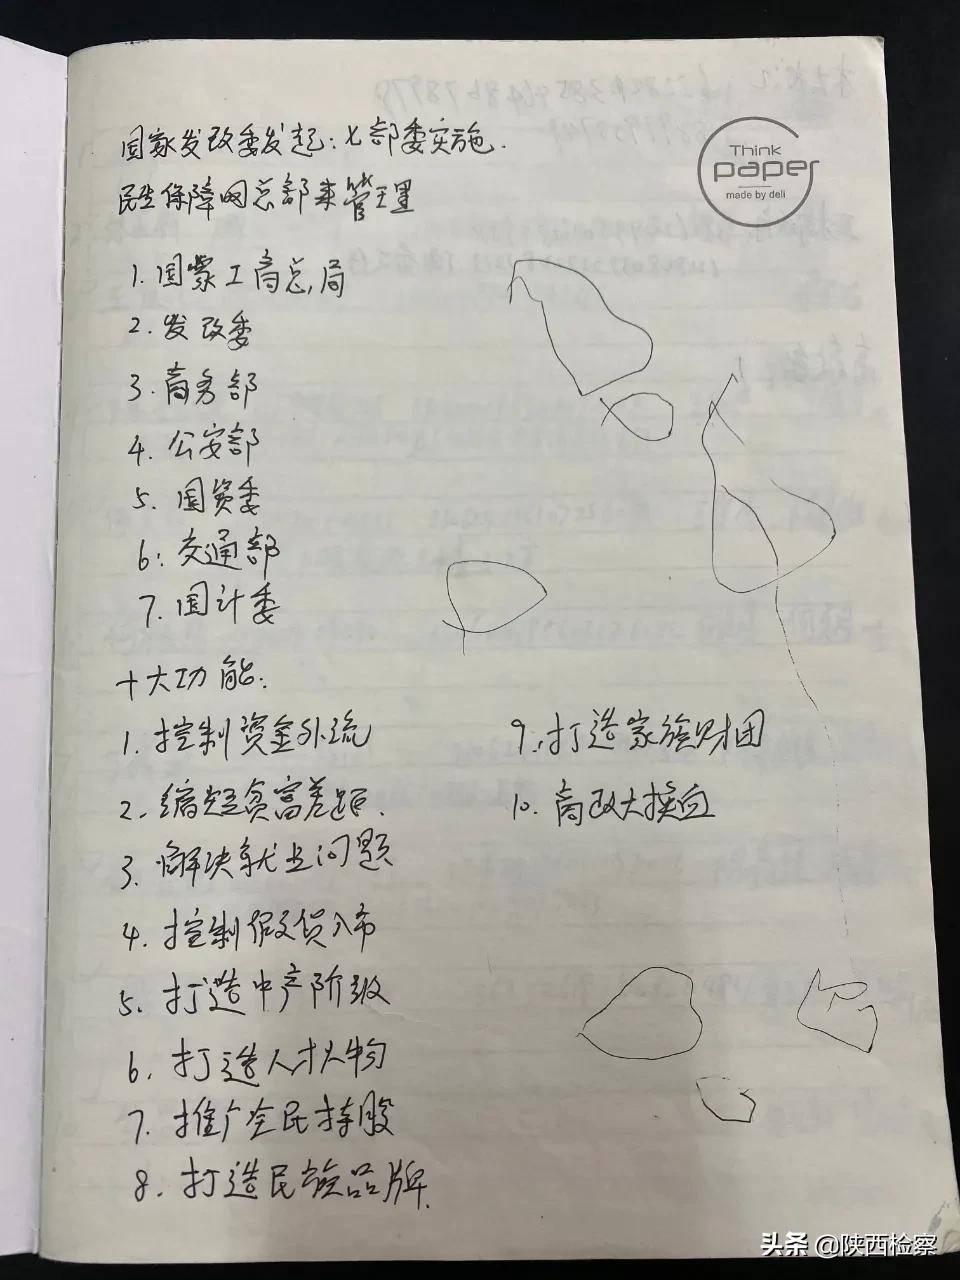 国家发改委发起:七部委实施.
民生保障网总部来管理
Think
paper
made by deli
1.国家工商总局
2.发改委
3.商务部
4.公安部
5.国资委
6:交通部
7.国计委
十大功能:
1.控制资金外流
2.缩短贫富差距.
3.解决就业问题
4.控制假货入市
5.打造中产阶级
6.打造人才人物
7.推广全民持股
8.打造民族品牌.
9.打造家族财团
10.商政大换血
头条 @陕西检察